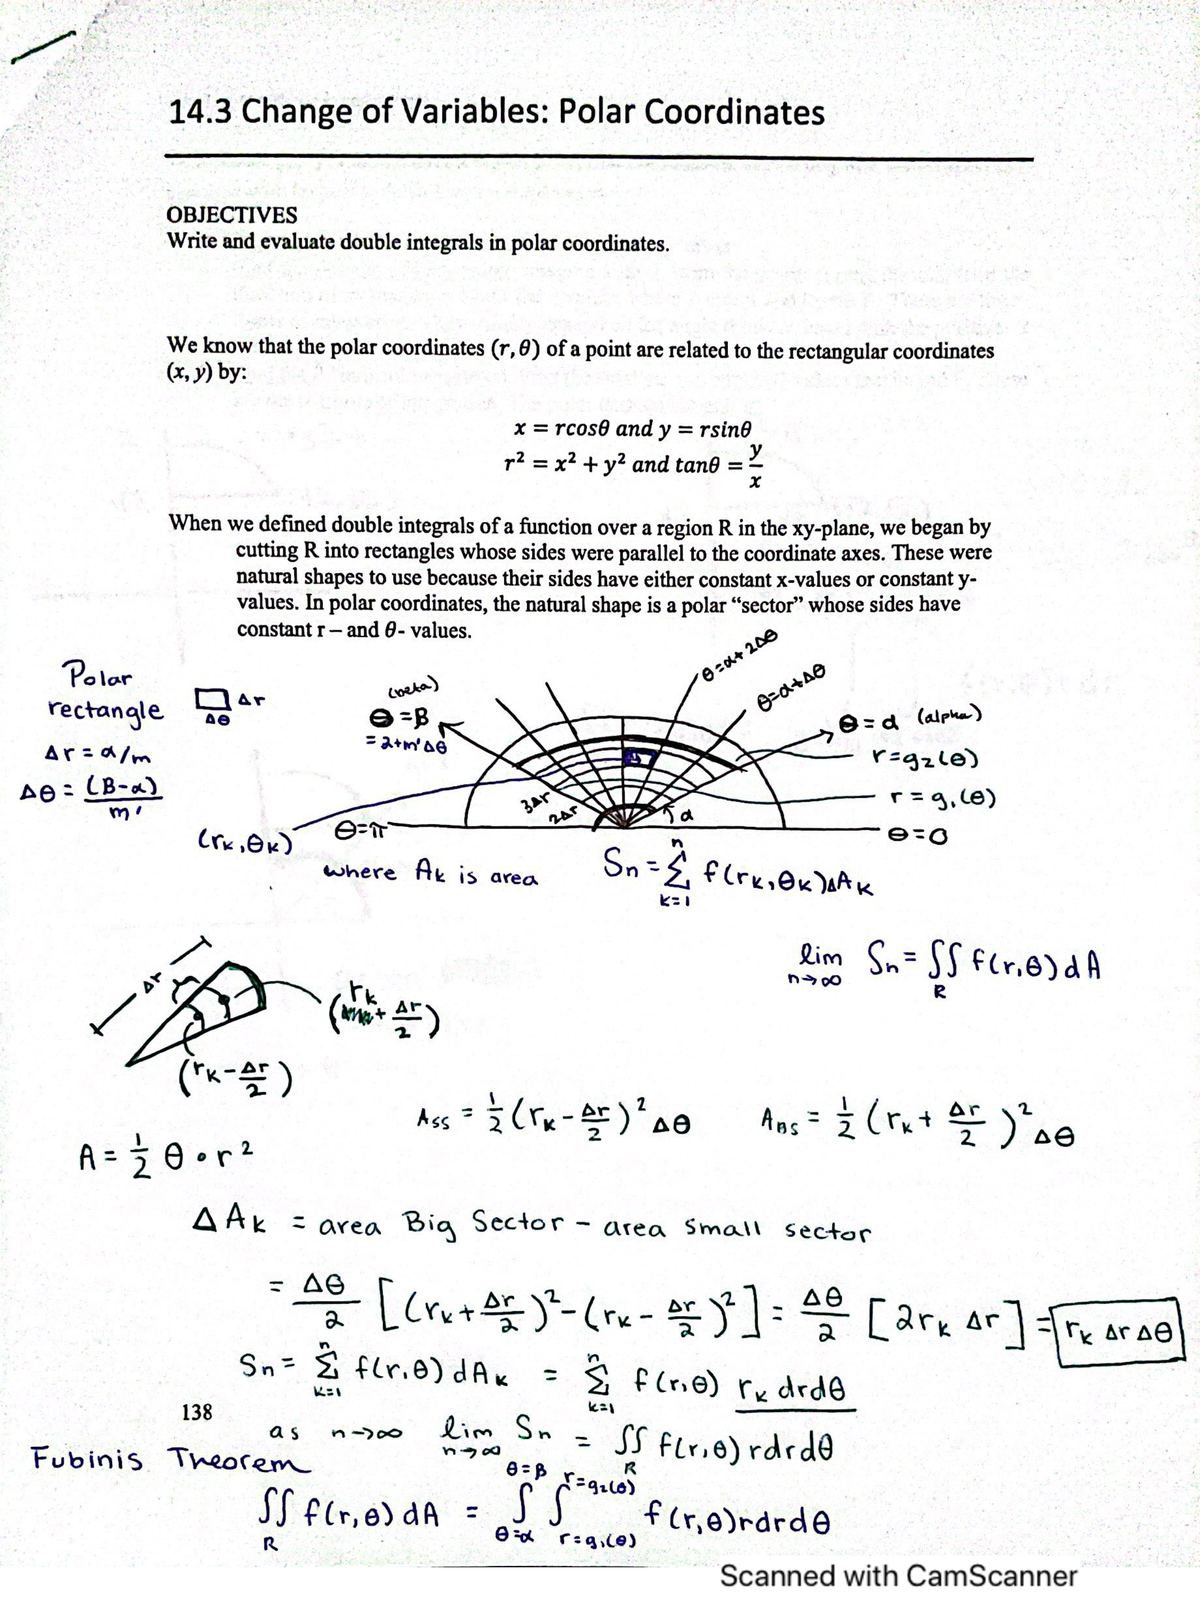 14.3 Change of Variables: Polar Coordinates
OBJECTIVES
Write and evaluate double integrals in polar coordinates.
We know that the polar coordinates (r, θ) of a point are related to the rectangular coordinates
(x, y) by:
x = rcosθ and y = rsinθ
r² = x² + y² and tanθ = y/x
When we defined double integrals of a function over a region R in the xy-plane, we began by
cutting R into rectangles whose sides were parallel to the coordinate axes. These were
natural shapes to use because their sides have either constant x-values or constant y-
values. In polar coordinates, the natural shape is a polar “sector” whose sides have
constant r – and θ- values.
Polar
rectangle
Δr
Δθ
Δr = a/m
Δθ = (B-α)/m'
(beta)
θ = β
= 2+m'Δθ
θ=α+2Δθ
θ=α+Δθ
θ = α (alpha)
r=g₂(θ)
r = g₁(θ)
θ=0
α
3Δr
2Δr
θ=π
(rₖ,θₖ)
where Aₖ is area
Sn = Σ k=1 n f(rₖ,θₖ)ΔAₖ
lim n→∞ Sn = ∬ R f(r,θ)dA
Δr
(rₖ + Δr/2)
(rₖ - Δr/2)
A = 1/2 θ • r²
Ass = 1/2 (rₖ - Δr/2)² Δθ
ABS = 1/2 (rₖ + Δr/2)² Δθ
ΔAₖ = area Big Sector - area small sector
= Δθ/2 [(rₖ + Δr/2)² - (rₖ - Δr/2)²] = Δθ/2 [2rₖ Δr] = rₖ Δr Δθ
Sn = Σ k=1 n f(r,θ) dAₖ = Σ k=1 n f(r,θ) rₖ drdθ
138
as n→∞ lim n→∞ Sn = ∬ R f(r,θ) rdrdθ
Fubinis Theorem
∬ R f(r,θ) dA = ∫ θ=α θ=β ∫ r=g₁(θ) r=g₂(θ) f(r,θ)rdrdθ
Scanned with CamScanner